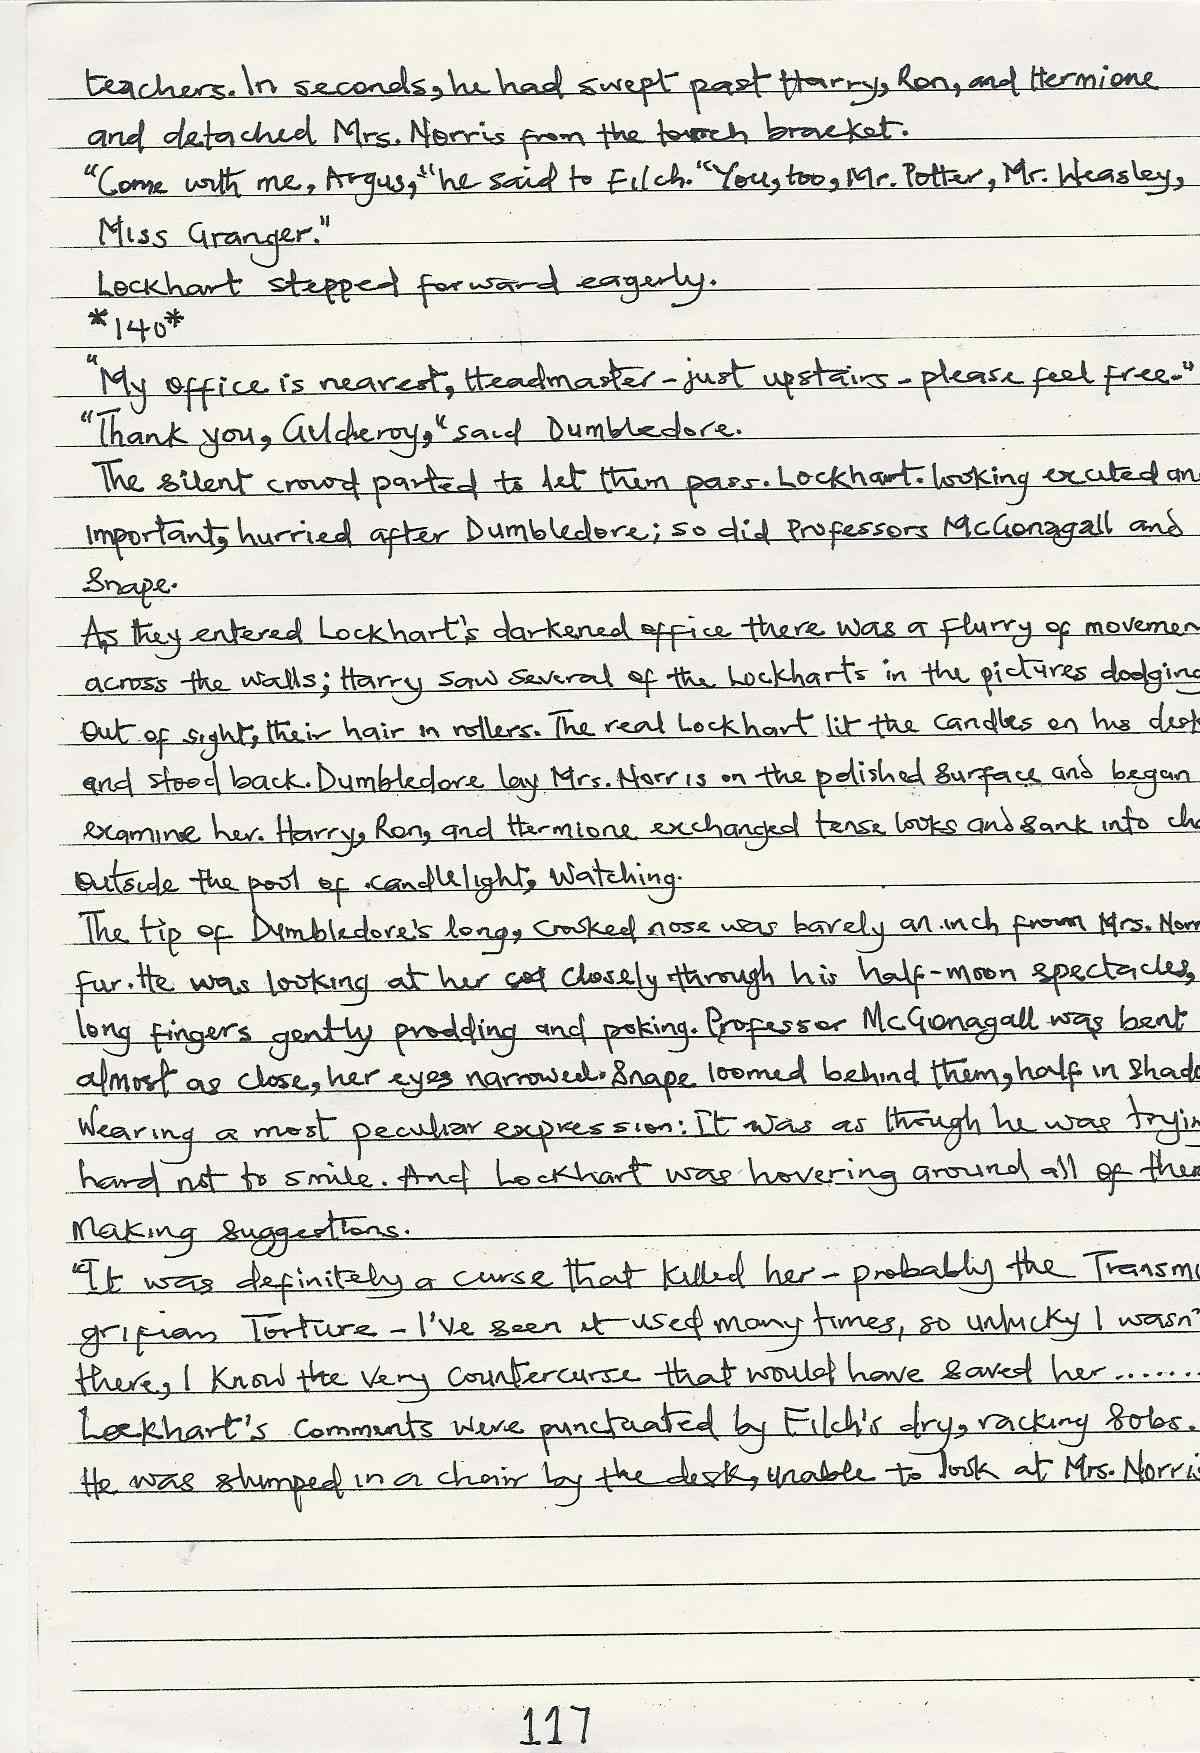 teachers. In seconds, he had swept past Harry, Ron, and Hermione
and detached Mrs. Norris from the torch bracket.
"Come with me, Argus," he said to Filch. "You, too, Mr. Potter, Mr. Weasley,
Miss Granger."
Lockhart stepped forward eagerly.
*140*
"My office is nearest, Headmaster - just upstairs - please feel free-"
"Thank you, Gilderoy," said Dumbledore.
The silent crowd parted to let them pass. Lockhart. looking excited an
important, hurried after Dumbledore; so did Professors McGonagall and
Snape.
As they entered Lockhart's darkened office there was a flurry of movemen
across the walls; Harry saw several of the Lockharts in the pictures dodging
out of sight, their hair in rollers. The real Lockhart lit the candles on his desk
and stood back. Dumbledore lay Mrs. Norris on the polished surface and began
examine her. Harry, Ron, and Hermione exchanged tense looks and sank into cha
outside the pool of candlelight, watching.
The tip of Dumbledore's long, crooked nose was barely an inch from Mrs. Norr
fur. He was looking at her closely through his half-moon spectacles,
long fingers gently prodding and poking. Professor McGonagall was bent
almost as close, her eyes narrowed. Snape loomed behind them, half in shado
Wearing a most peculiar expression: It was as though he was tryin
hard not to smile. And Lockhart was hovering around all of them
Making suggestions.
"It was definitely a curse that killed her - probably the Transmo
grifian Torture - I've seen it used many times, so unlucky I wasn't
there, I know the very countercurse that would have saved her.......
Lockhart's comments were punctuated by Filch's dry, racking sobs.
He was slumped in a chair by the desk, unable to look at Mrs. Norris
117